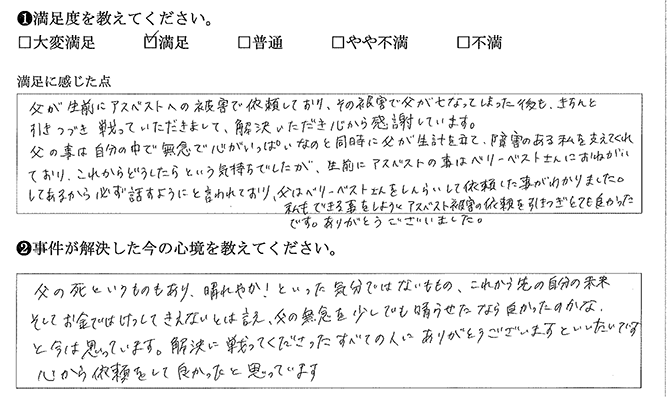 ❶満足度を教えてください。
□大変満足 ☑満足 □普通 □やや不満 □不満
満足に感じた点
父が生前にアスベストへの被害で依頼しており、その被害で父が亡なってしまった後も、きちんと
引きつづき戦っていただきまして、解決いただき心から感謝しています。
父の事は自分の中で無念で心がいっぱいなのと同時に父が生計を立て、障害のある私を支えてくれ
ており、これからどうしたらという気持ちでしたが、生前にアスベストの事はベリーベストさんにおねがい
してあるから必ず話すようにと言われており、父はベリーベストさんをしんらいして依頼した事がわかりました。
私もできる事をしようとアスベスト被害の依頼を引きつぎとても良かった
です。ありがとうございました。
❷事件が解決した今の心境を教えてください。
父の死というものもあり、晴れやか!といった気分ではないものの、これから先の自分の未来
そしてお金ではけっしてきえないとは言え、父の無念を少しでも晴らせたなら良かったのかな、
と今は思っています。解決に戦ってくださったすべての人にありがとうございますといいたいです
心から依頼をして良かったと思っています